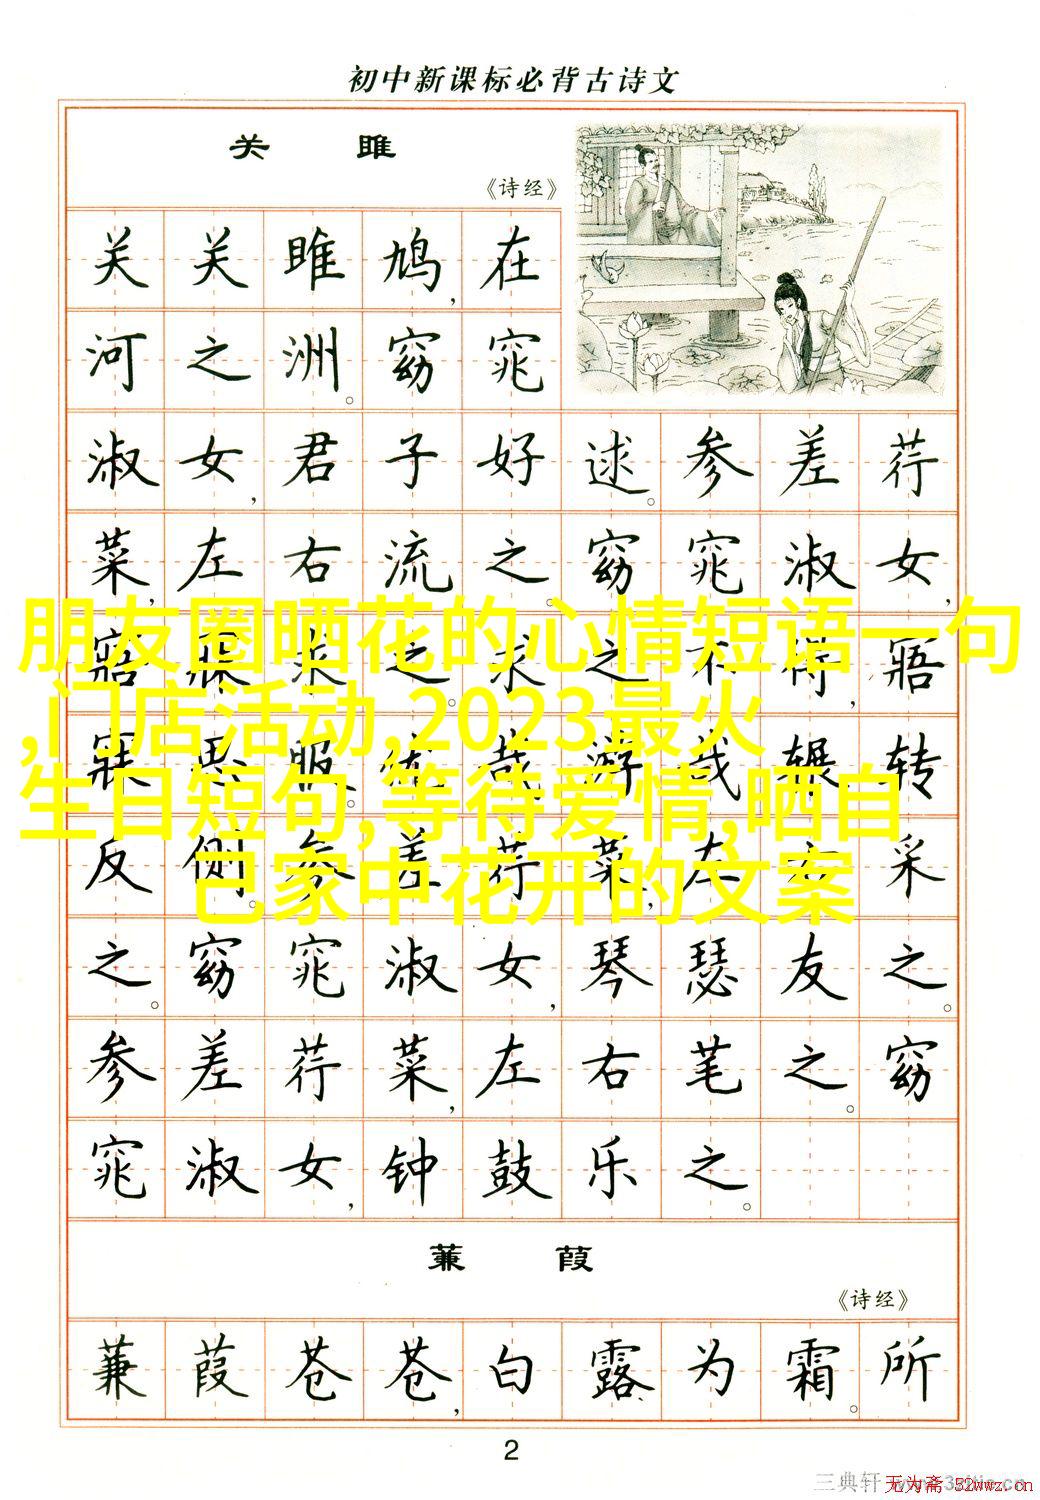 初中新课标必背古诗文
关 雎
《诗经》
关关雎鸠,在
河之洲。窈窕
淑女,君子好逑。参差荇
菜,左右流之。窈窕淑女,
寤寐求之。求之不得,寤
寐思服。优哉游哉,辗转
反侧。参差荇菜,左右采
之。窈窕淑女,琴瑟友之。
参差荇菜,左右芼之。窈
窕淑女,钟鼓乐之。
朋友圈晒花的心情短语一句
,门店活动,2023最火
生日短句,等待爱情,晒自
己家中花开的文案
蒹 葭
《诗经》
蒹葭苍苍,白露为霜。所
2
三典轩
无为斋 52wwz.cn